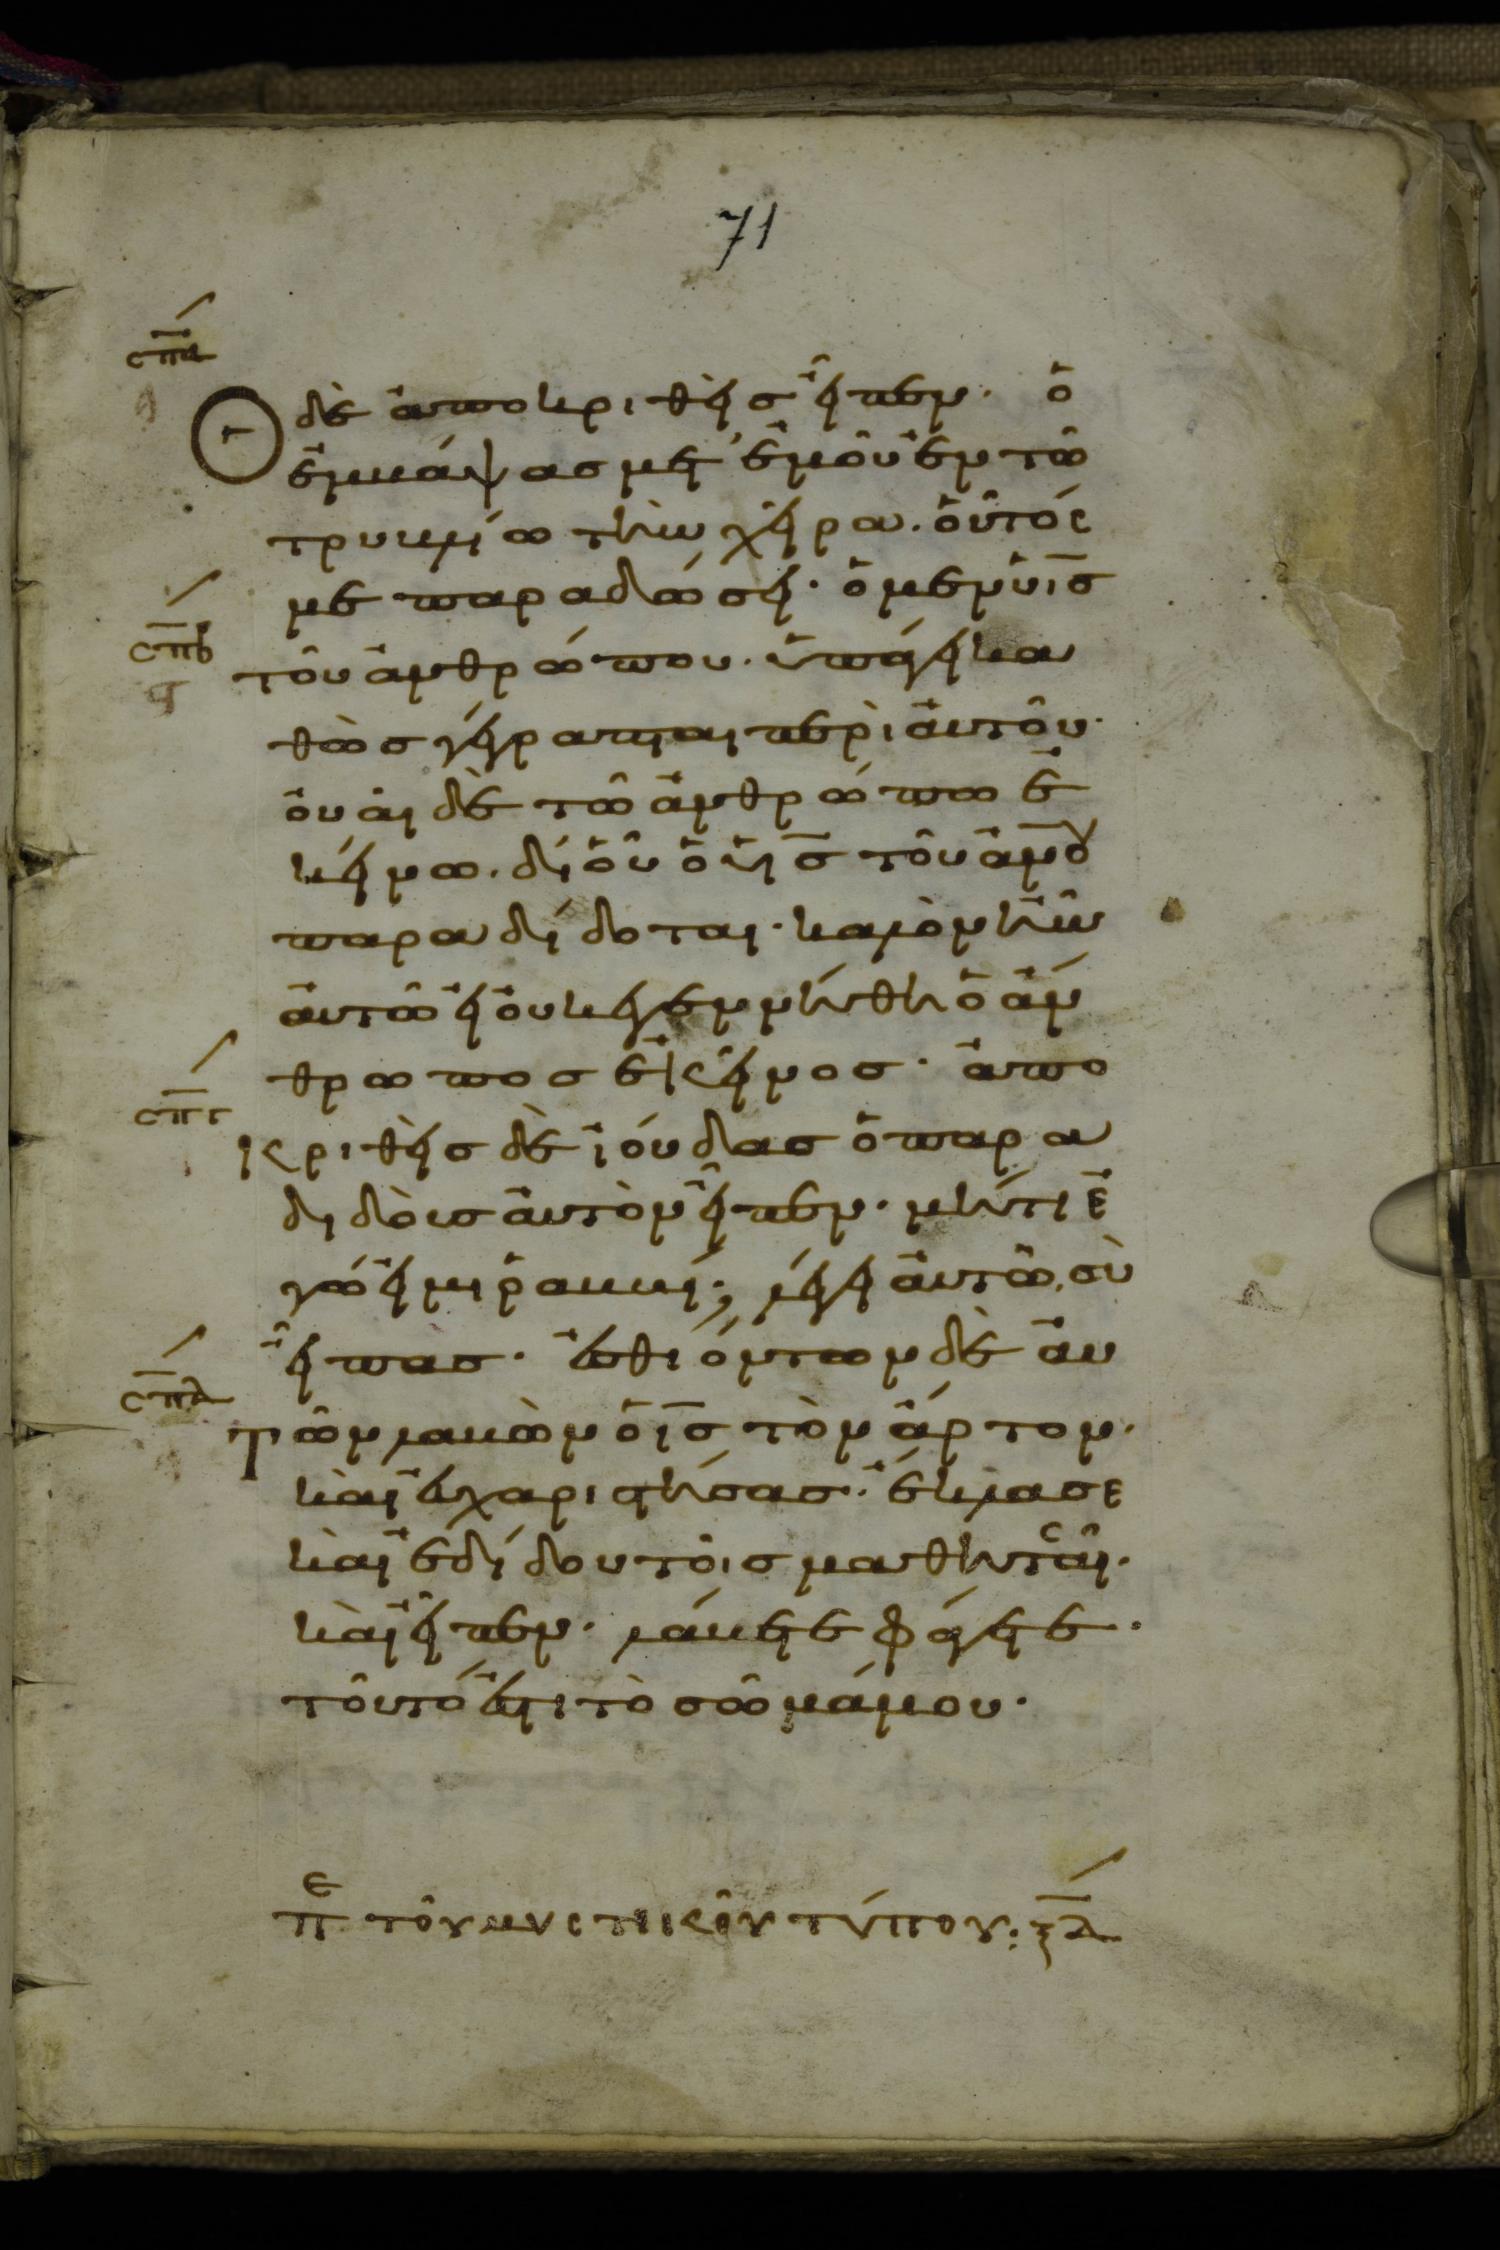 71
σπα
Ὁ δὲ ἀποκριθεὶς εἶπεν· ὁ
ἐμβάψας μετ' ἐμοῦ ἐν τῶ
τρυβλίω τὴν χεῖρα. οὗτός
με παραδώσει· ὁ μεν υἱς
σπβ
τοῦ ἀνθρώπου. ὑπάγει κα
θὼς γέγραπται περὶ αὐτοῦ·
οὐαὶ δὲ τῶ ἀνθρώπω ἐ
κείνω. δι οὗ ὁ υἱς τοῦ ἀνου
παραδίδοται· καλὸν ἦν
αὐτῶ εἰ οὐκ ἐγεννήθη ὁ ἄν
θρωπος ἐκεῖνος· ἀπο
σπγ
κριθεὶς δὲ ἰούδας ὁ παρα
διδοὺς αὐτὸν εἶπεν· μήτι ἐ
γώ εἰμι ῥαββί; λέγει αὐτῶ, σὺ
εἶπας· ἐσθιόντων δὲ αὐ
σπδ
τῶν λαβὼν ὁ ις τὸν ἄρτον·
καὶ εὐχαριστήσας· ἔκλασε
καὶ ἐδίδου τοῖς μαθηταῖς·
καὶ εἶπεν· λάβετε φάγετε·
τοῦτό ἐστι τὸ σῶμά μου·
πε τοῦ μυστικοῦ τύπου: ξδ